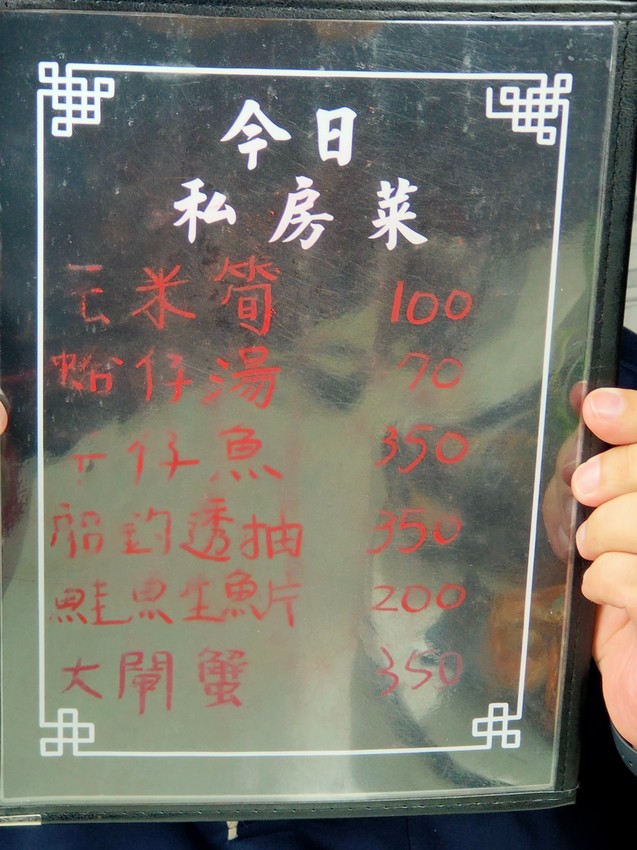 今日
私房菜
玉米筍 100
蛤仔湯 70
午仔魚 350
船釣透抽 350
鮭魚生魚片 200
大閘蟹 350